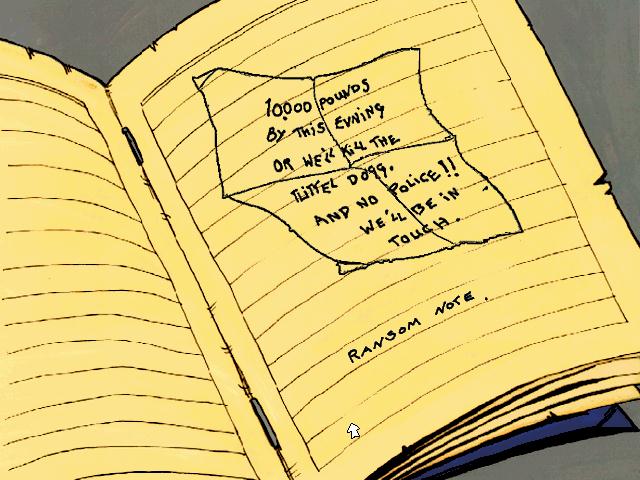 10,000 POUNDS
BY THIS EVNING
OR WE'LL KILL THE
LITTEL DOGG.
AND NO POLICE!!
WE'LL BE IN
TOUCH.
RANSOM NOTE.